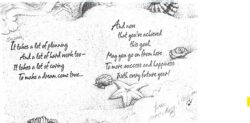 It takes a lot of planning
And a lot of hard work too–
It takes a lot of caring
To make a dream come true...
And now
that you've achieved
this goal,
May you go on from here
To more success and happiness
Each every future year!